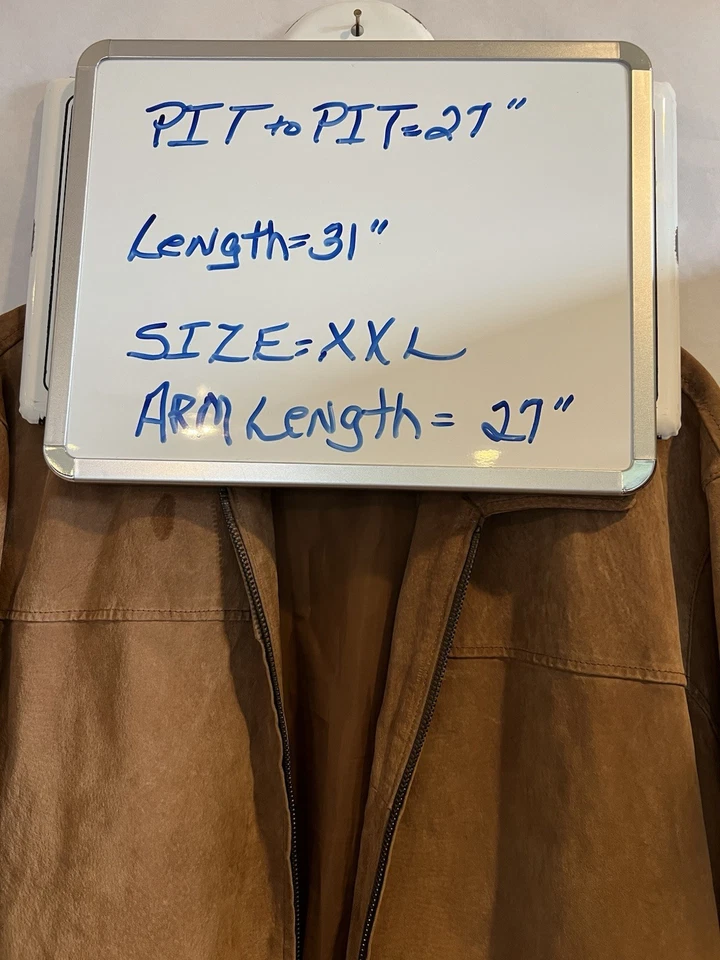 PIT to PIT=27"
Length=31"
SIZE=XXL
ARM Length = 27"